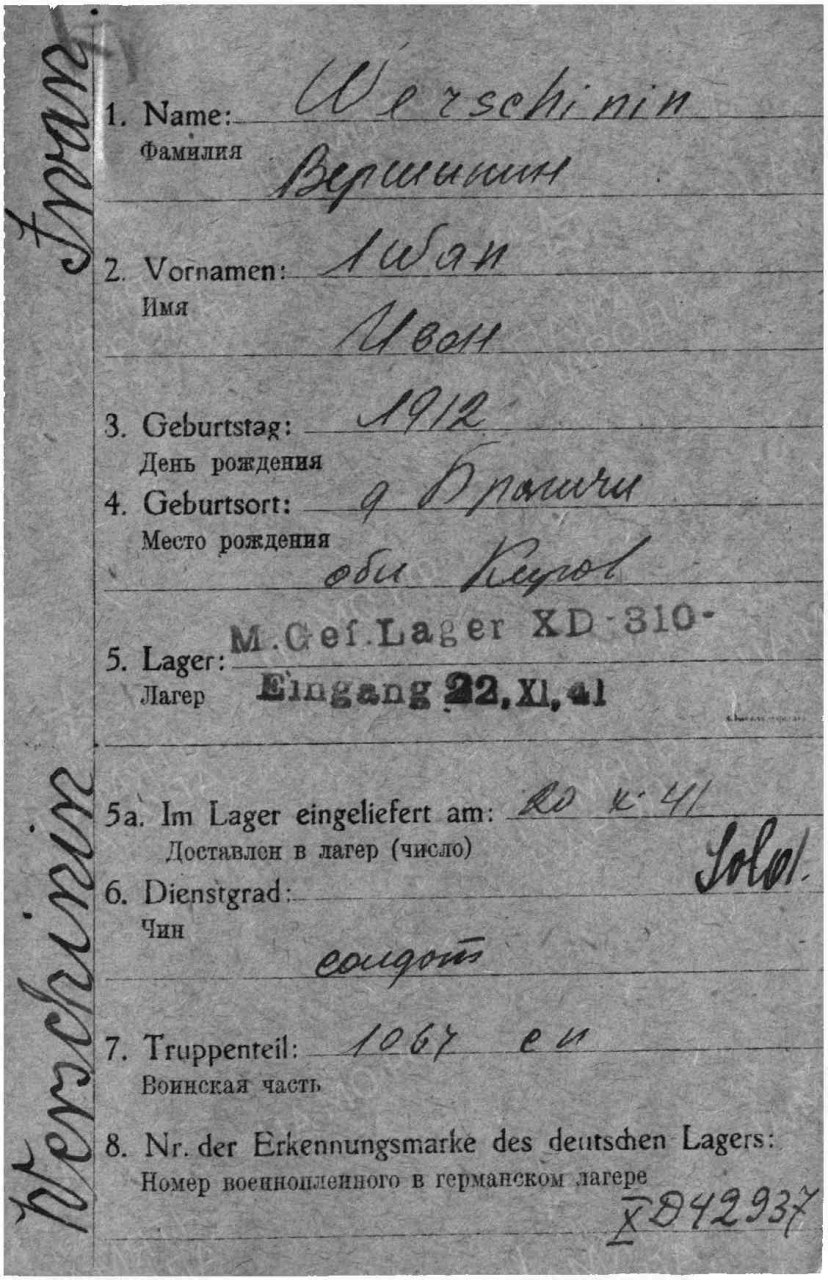 Werschinin Iwan
1. Name: Werschinin
Фамилия
Вершинин
2. Vornamen: Iwan
Имя
Иван
3. Geburtstag: 1912
День рождения
4. Geburtsort: д
Место рождения
обл Киров
M.Gef.Lager XD-310-
5. Lager:
Лагер
Eingang 22.XI.41
5a. Im Lager eingeliefert am: 20 X 41
Доставлен в лагер (число)
Sold.
6. Dienstgrad:
Чин
солдат
7. Truppenteil: 1067 сп
Воинская часть
8. Nr. der Erkennungsmarke des deutschen Lagers:
Номер военнопленного в германском лагере
XD42937